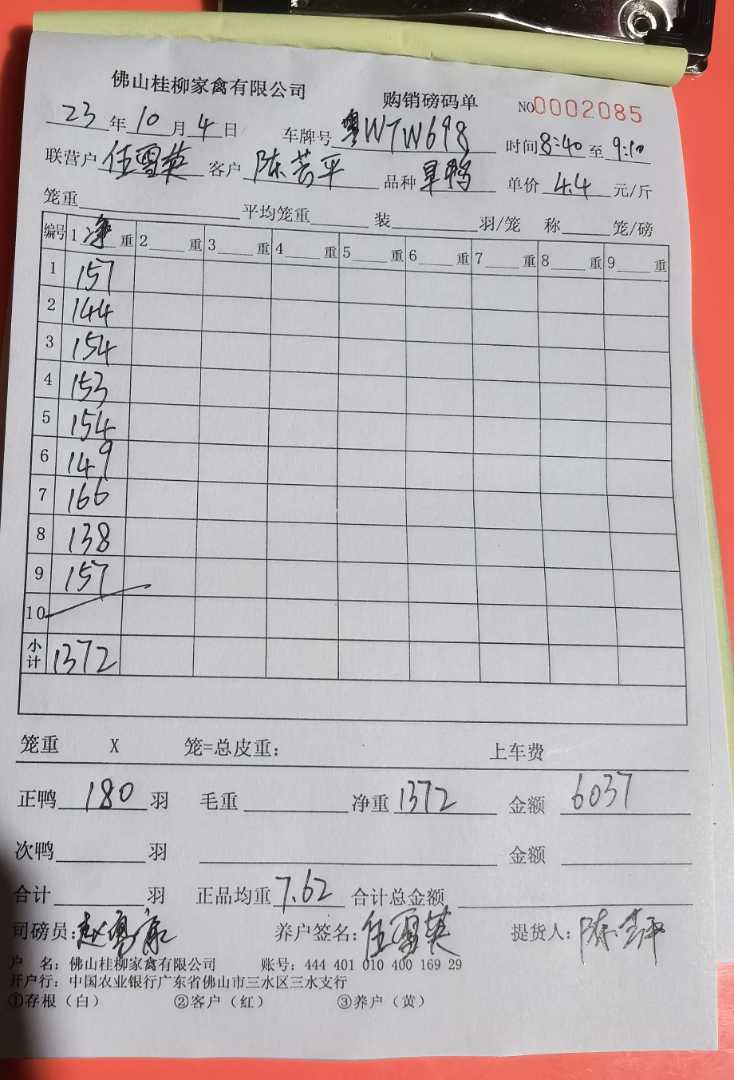 佛山桂柳家禽有限公司 购销磅码单 NO0002085
23年10月4日 车牌号粤WTW698 时间8:40至9:10
联营户伍雪英 客户陈芸平 品种旱鸭 单价4.4元/斤
笼重 平均笼重 装 羽/笼 称 笼/磅
编号 1净重 2 重 3 重 4 重 5 重 6 重 7 重 8 重 9 重
1 157
2 144
3 154
4 153
5 154
6 149
7 166
8 138
9 157
10
小计 1372
笼重 X 笼=总皮重: 上车费
正鸭180羽 毛重 净重1372 金额6037
次鸭 羽 金额
合计 羽 正品均重7.62 合计总金额
司磅员: 养户签名:伍雪英 提货人:陈芸平
户 名:佛山桂柳家禽有限公司 账号:444 401 010 400 169 29
开户行:中国农业银行广东省佛山市三水区三水支行
①存根(白) ②客户(红) ③养户(黄)